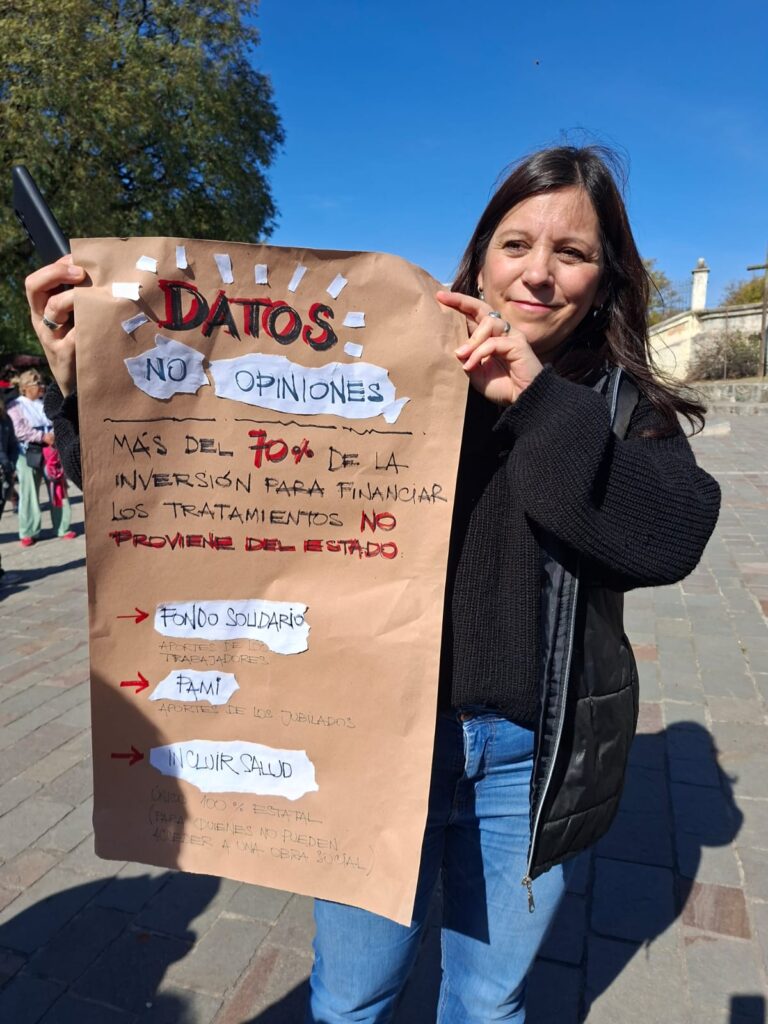 DATOS
NO OPINIONES
MÁS DEL 70% DE LA
INVERSIÓN PARA FINANCIAR
LOS TRATAMIENTOS NO
PROVIENE DEL ESTADO.
→ FONDO SOLIDARIO
APORTES DE LOS
TRABAJADORES
→ PAMI
APORTES DE LOS JUBILADOS
→ INCLUIR SALUD
ÚNICO 100% ESTATAL
(PARA QUIENES NO PUEDEN
ACCEDER A UNA OBRA SOCIAL)